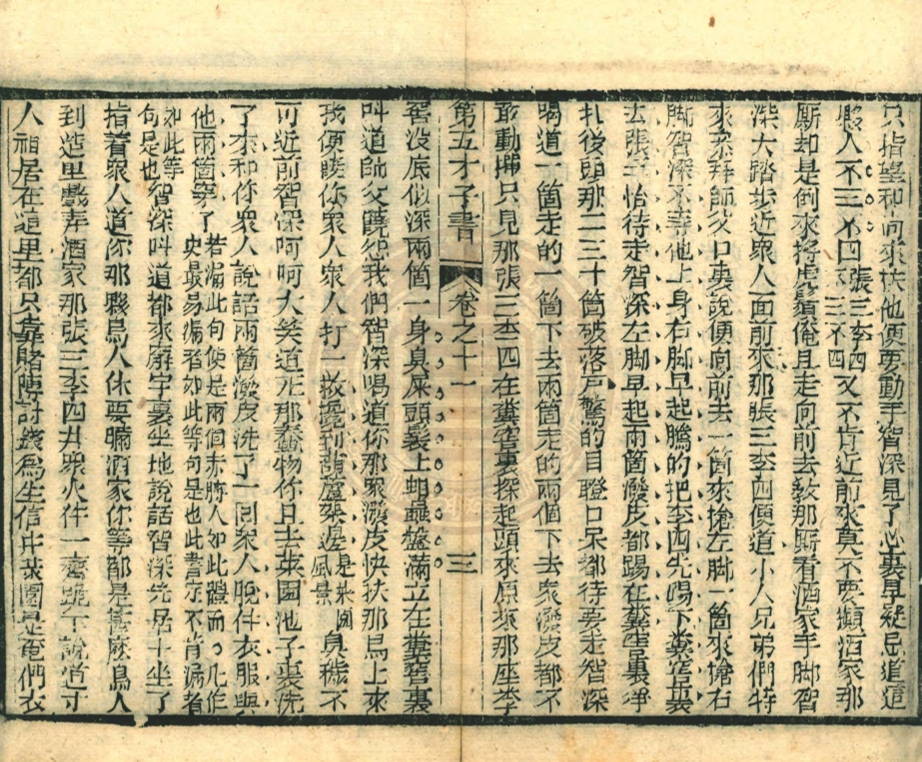 只指望和尚來扶他便要動手智深見了心裏早疑忌道這
夥人不三不四張三李四三不四又不肯近前來莫不要攧洒家那
厮却是倒來捋虎鬚俺且走向前去教那厮看洒家手脚智
深大踏步近衆人面前來那張三李四便道小人兄弟們特
來參拜師父口裏說便向前去一箇來搶左脚一箇來搶右
脚智深不等他上身右脚早起騰的把李四先踢下糞窖裏
去張三恰待走智深左脚早起兩箇潑皮都踢在糞窖裏掙
扎後頭那二三十箇破落戶驚的目瞪口呆都待要走智深
喝道一箇走的一箇下去兩箇走的兩個下去衆潑皮都不
敢動撣只見那張三李四在糞窖裏探起頭來原來那座糞
第五才子書 卷之十一 三
窖沒底似深兩箇一身臭屎頭髮上蛆蟲盤滿立在糞窖裏
叫道師父饒恕我們智深喝道你那衆潑皮快扶那鳥上來
我便饒你衆人衆人打一救攙到葫蘆架邊是菜園風景臭穢不
可近前智深呵呵大笑道兀那蠢物你且去菜園池子裏洗
了來和你衆人說話兩箇潑皮洗了一回衆人脫件衣服與
他兩箇穿了若漏此句便是兩個赤膊人如此體面而凡作史最易漏者如此等句是也此書定不肯漏者
如此等句是也智深叫道都來廨宇裏坐地說話智深先居中坐了
指着衆人道你那夥鳥人休要瞞洒家你等都是甚麽鳥人
到這里戲弄洒家那張三李四并衆火伴一齊跪下說道小
人祖居在這里都只靠賭博討錢爲生這片菜園是俺們衣